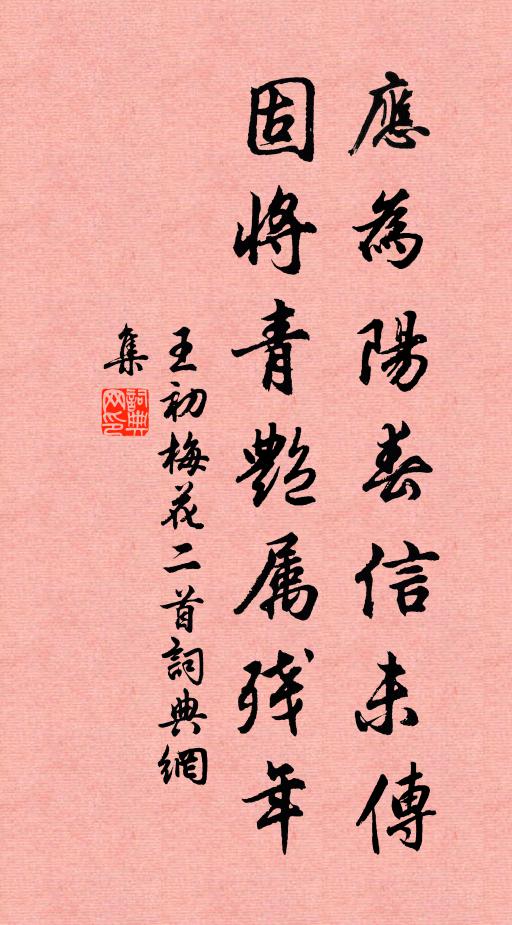 應為陽春信未傳
固將青艷属残年
王初梅花二首詞典網
集
詞典網印